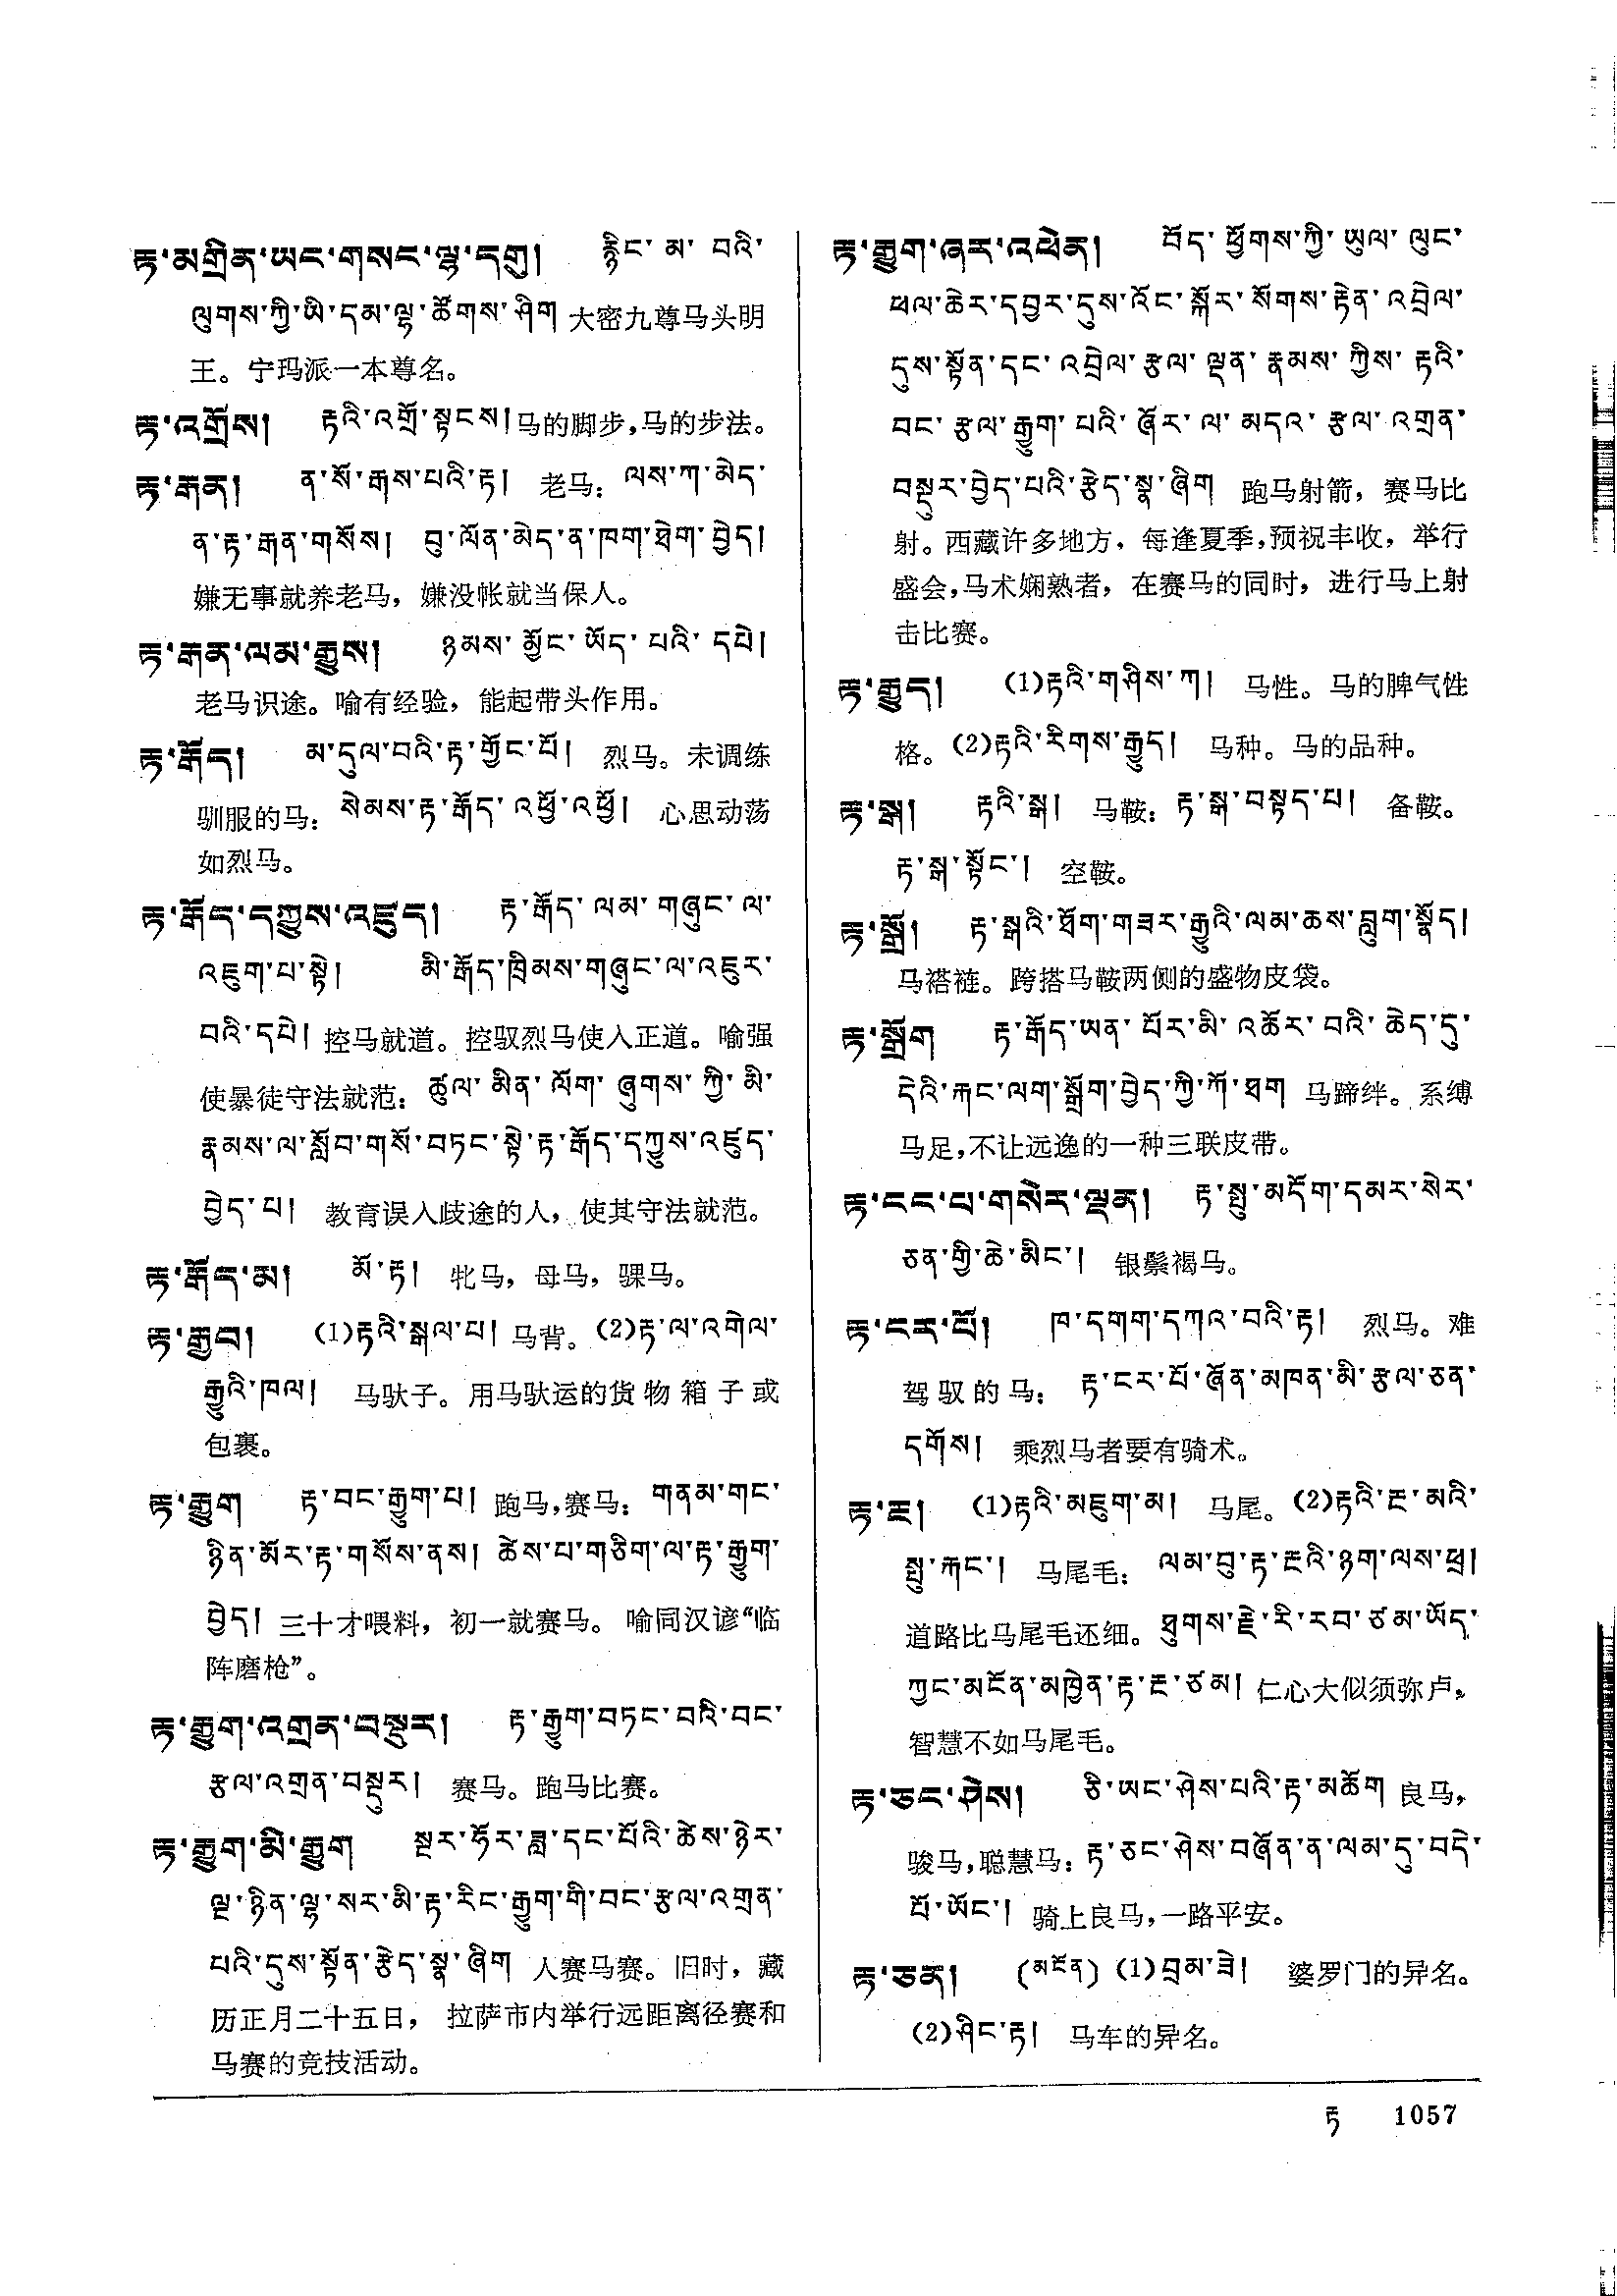 རྟ་མགྲིན་ཡང་གསང་ལྷ་དགུ། རྙིང་མ་བའི་
ལུགས་ཀྱི་ཡི་དམ་ལྷ་ཚོགས་ཤིག 大密九尊马头明
王。宁玛派一本尊名。
རྟ་འགྲོས། རྟའི་འགྲོ་སྟངས། 马的脚步,马的步法。
རྟ་རྒན། ན་སོ་རྒས་པའི་རྟ། 老马: ལས་ཀ་མེད་
ན་རྟ་རྒན་གསོས། བུ་ལོན་མེད་ན་ཁག་ཐེག་བྱེད།
嫌无事就养老马，嫌没帐就当保人。
རྟ་རྒན་ལམ་རྒྱུས། ཉམས་མྱོང་ཡོད་པའི་དཔེ།
老马识途。喻有经验，能起带头作用。
རྟ་རྒོད། མ་དུལ་བའི་རྟ་གྱོང་པོ། 烈马。未调练
驯服的马: སེམས་རྟ་རྒོད་འཕྱོ་འཕྱོ། 心思动荡
如烈马。
རྟ་རྒོད་དཀྱུས་འཛུད། རྟ་རྒོད་ལམ་གཞུང་ལ་
འཇུག་པ་སྟེ། མི་རྒོད་ཁྲིམས་གཞུང་ལ་འཇུར་
བའི་དཔེ། 控马就道。控驭烈马使入正道。喻强
使暴徒守法就范: ཚུལ་མིན་ལོག་ཞུགས་ཀྱི་མི་
རྣམས་ལ་སློབ་གསོ་བཏང་སྟེ་རྟ་རྒོད་དཀྱུས་འཛུད་
བྱེད་པ། 教育误入歧途的人，使其守法就范。
རྟ་རྒོད་མ། མོ་རྟ། 牝马，母马，骒马。
རྟ་རྒྱབ། (1)རྟའི་སྒལ་པ། 马背。(2)རྟ་ལ་འགེལ་
རྒྱུའི་ཁལ། 马驮子。用马驮运的货物箱子或
包裹。
རྟ་རྒྱུག རྟ་བང་རྒྱུག་པ། 跑马,赛马: གནམ་གང་
ཉིན་མོར་རྟ་གསོས་ནས། ཚེས་པ་གཅིག་ལ་རྟ་རྒྱུག་
བྱེད། 三十才喂料，初一就赛马。喻同汉谚“临
阵磨枪”。
རྟ་རྒྱུག་འགྲན་བསྡུར། རྟ་རྒྱུག་བཏང་བའི་བང་
རྩལ་འགྲན་བསྡུར། 赛马。跑马比赛。
རྟ་རྒྱུག་མི་རྒྱུག སྔར་ཧོར་ཟླ་དང་པོའི་ཚེས་ཉེར་
ལྔ་ཉིན་ལྷ་སར་མི་རྟ་རིང་རྒྱུག་གི་བང་རྩལ་འགྲན་
པའི་དུས་སྟོན་རྩེད་སྣ་ཞིག 人赛马赛。旧时，藏
历正月二十五日，拉萨市内举行远距离径赛和
马赛的竞技活动。
རྟ་རྒྱུག་ཞར་འཕེན། བོད་ཕྱོགས་ཀྱི་ཡུལ་ལུང་
ཕལ་ཆེར་དབྱར་དུས་འོང་སྐོར་སོགས་རྟེན་འབྲེལ་
དུས་སྟོན་དང་འབྲེལ་རྩལ་ལྡན་རྣམས་ཀྱིས་རྟའི་
བང་རྩལ་རྒྱུག་པའི་ཞོར་ལ་མདའ་རྩལ་འགྲན་
བསྡུར་བྱེད་པའི་རྩེད་སྣ་ཞིག 跑马射箭，赛马比
射。西藏许多地方，每逢夏季,预祝丰收，举行
盛会,马术娴熟者，在赛马的同时，进行马上射
击比赛。
རྟ་རྒྱུད། (1)རྟའི་གཤིས་ཀ། 马性。马的脾气性
格。(2)རྟའི་རིགས་རྒྱུད། 马种。马的品种。
རྟ་སྒ། རྟའི་སྒ། 马鞍: རྟ་སྒ་བསྟད་པ། 备鞍。
རྟ་སྒ་སྟོང་། 空鞍。
རྟ་སྒྲོ། རྟ་སྒའི་ཐོག་གཟར་རྒྱུའི་ལམ་ཆས་བླུག་སྣོད།
马褡裢。跨搭马鞍两侧的盛物皮袋。
རྟ་སྒྲོག རྟ་རྒོད་ཡན་པོར་མི་འཚོར་བའི་ཆེད་དུ་
དེའི་རྐང་ལག་སྒྲོག་བྱེད་ཀྱི་ཀོ་ཐག 马蹄绊。系缚
马足,不让远逸的一种三联皮带。
རྟ་ངང་པ་གསེར་ལྡན། རྟ་སྤུ་མདོག་དམར་སེར་
ཅན་གྱི་ཆེ་མིང་། 银鬃褐马。
རྟ་ངར་པོ། ཁ་དགག་དཀའ་བའི་རྟ། 烈马。难
驾驭的马: རྟ་ངར་པོ་ཞོན་མཁན་མི་རྩལ་ཅན་
དགོས། 乘烈马者要有骑术。
རྟ་རྔ། (1)རྟའི་མཇུག་མ། 马尾。(2)རྟའི་རྔ་མའི་
སྤུ་རྐང་། 马尾毛: ལམ་བུ་རྟ་རྔའི་ཉག་ལས་ཕྲ།
道路比马尾毛还细。ཐུགས་རྗེ་རི་རབ་ཙམ་ཡོད་
ཀྱང་མངོན་མཁྱེན་རྟ་རྔ་ཙམ། 仁心大似须弥卢，
智慧不如马尾毛。
རྟ་ཅང་ཤེས། ཅི་ཡང་ཤེས་པའི་རྟ་མཆོག 良马，
骏马,聪慧马: རྟ་ཅང་ཤེས་བཞོན་ན་ལམ་དུ་བདེ་
པོ་ཡོང་། 骑上良马,一路平安。
རྟ་ཅན། (མངོན) (1)བྲམ་ཟེ། 婆罗门的异名。
(2)ཤིང་རྟ། 马车的异名。
རྟ 1057